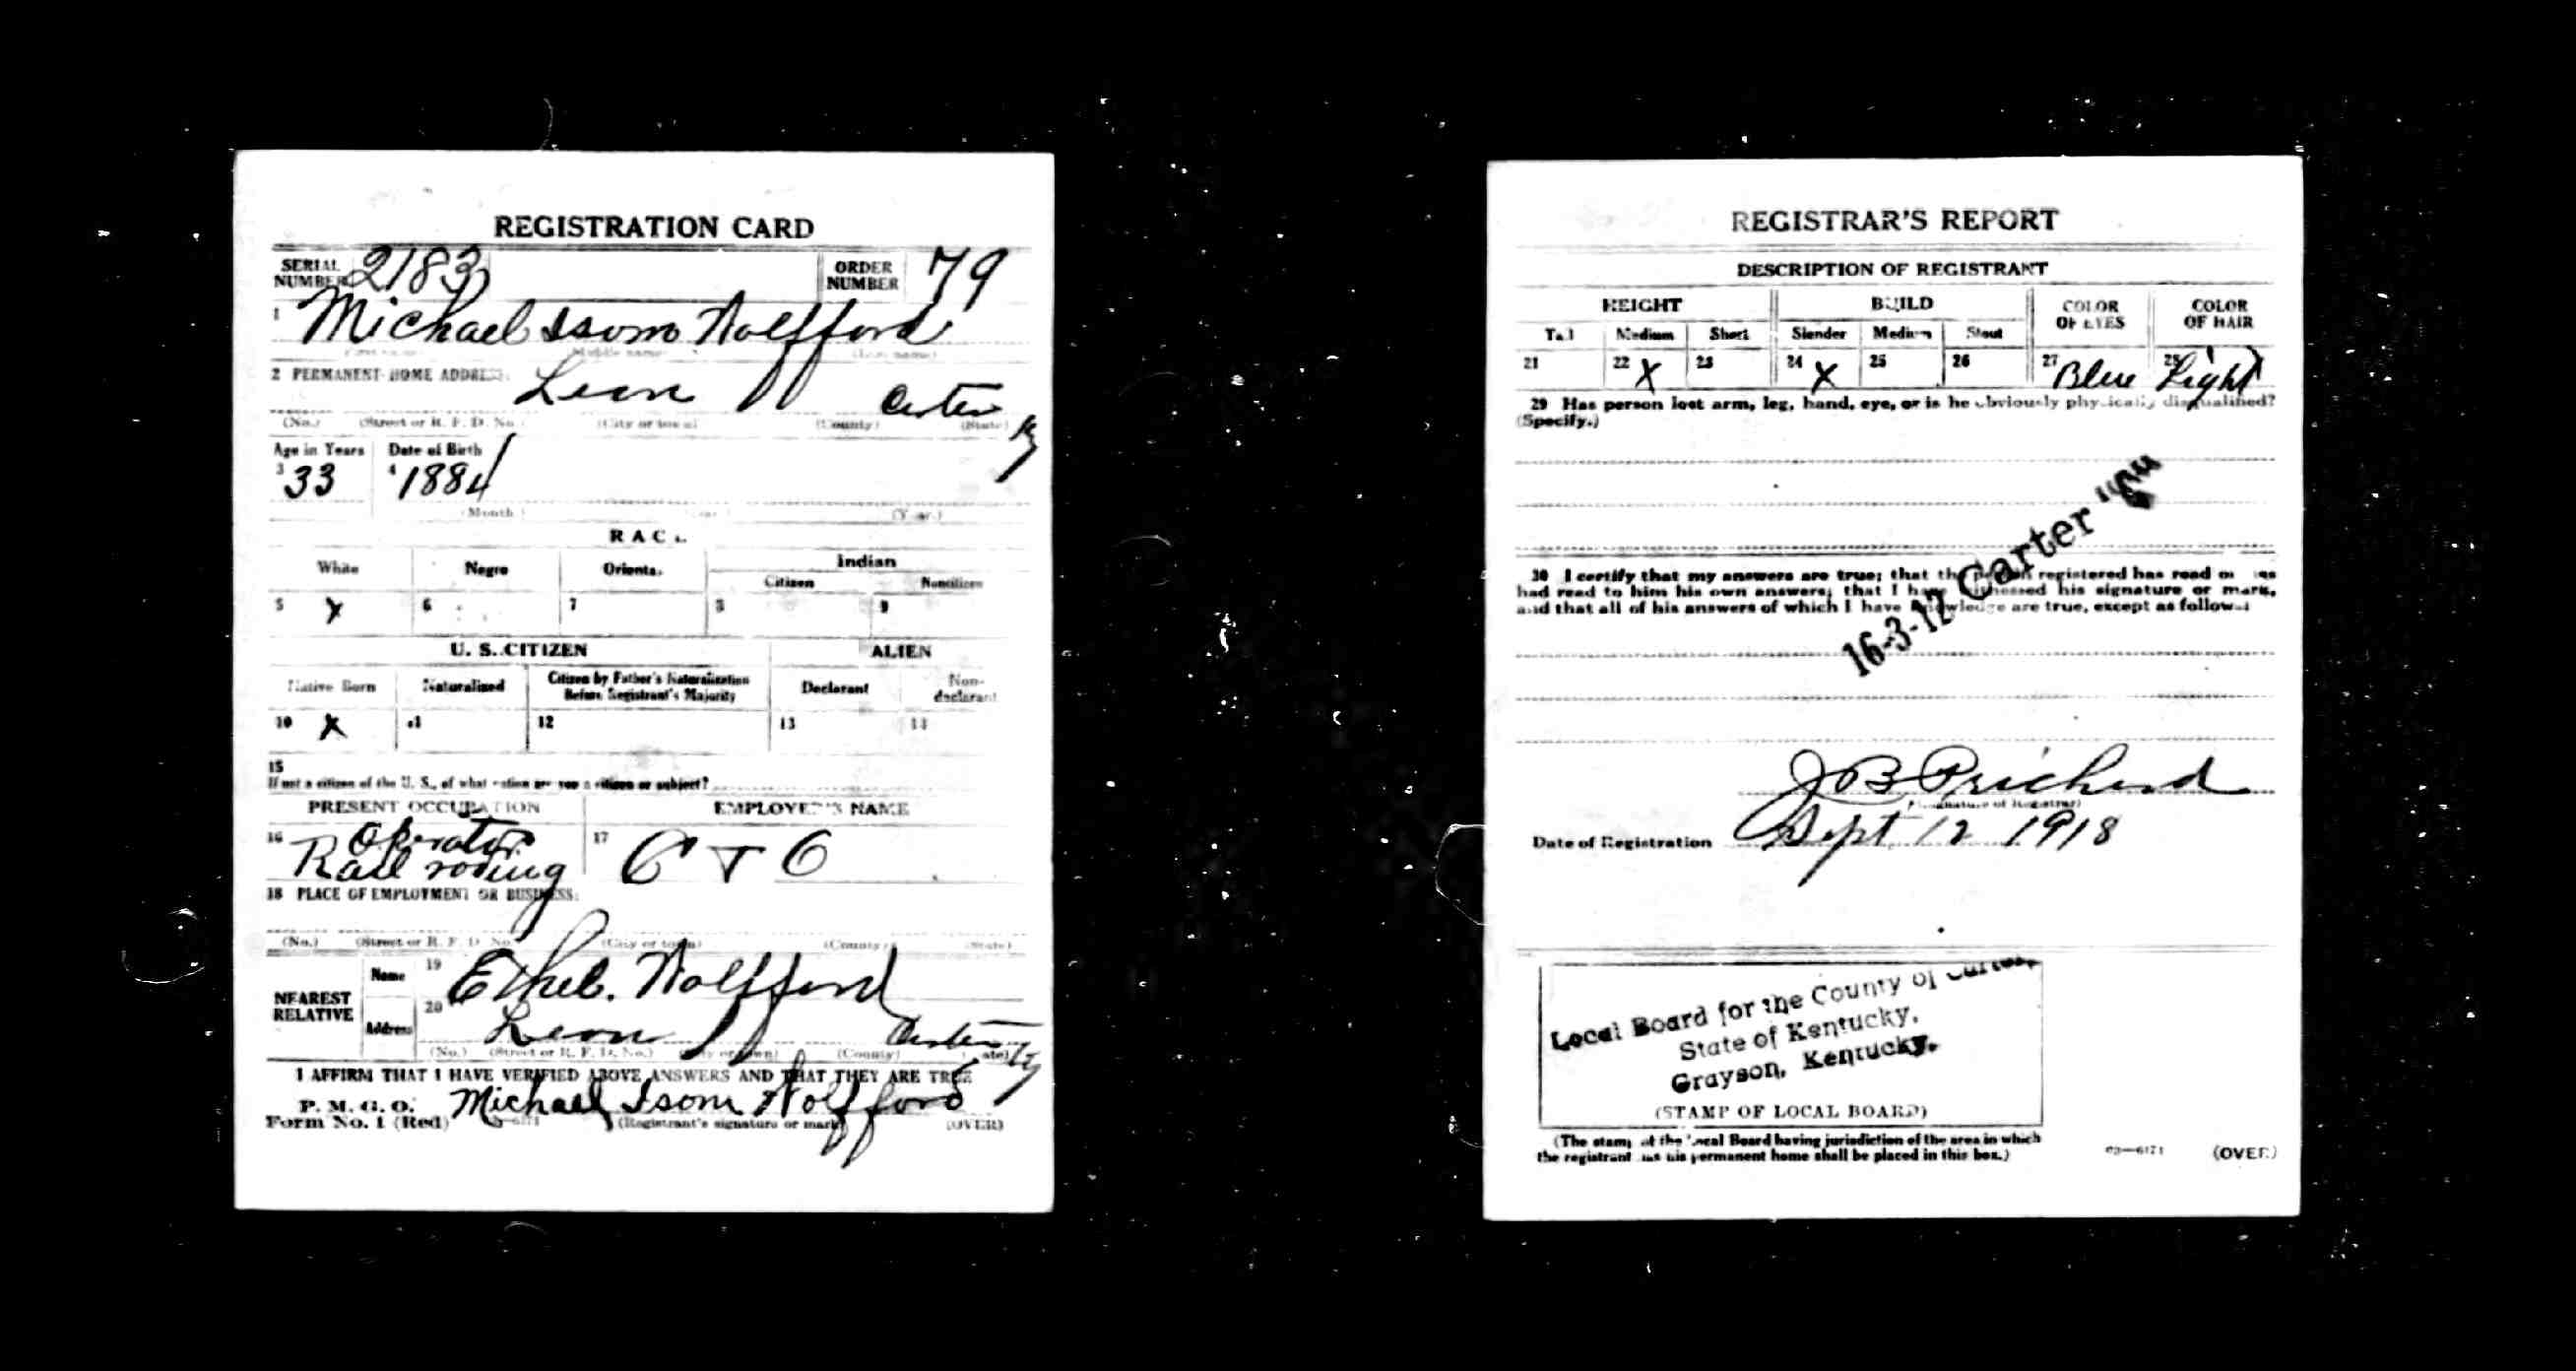 REGISTRATION CARD
SERIAL NUMBER 2183 ORDER NUMBER 79
1 Michael Isom Wolfford
(First name) (Middle name) (Last name)
2 PERMANENT HOME ADDRESS:
Leon Carter Ky
(No.) (Street or R. F. D. No.) (City or town) (County) (State)
Age in Years Date of Birth
3 33 4 1884
(Month) (Day) (Year)
RACE
White Negro Oriental Indian
Citizen Noncitizen
5 X 6 7 8 9
U. S. CITIZEN ALIEN
Native Born Naturalized Citizen by Father's Naturalization Before Registrant's Majority Declarant Non-declarant
10 X 11 12 13 14
15
If not a citizen of the U. S., of what nation are you a citizen or subject?
PRESENT OCCUPATION EMPLOYER'S NAME
16 Operator Rail roding 17 C + O
18 PLACE OF EMPLOYMENT OR BUSINESS:
(No.) (Street or R. F. D. No.) (City or town) (County) (State)
NEAREST RELATIVE
Name 19 Ethel. Wolfford
Address 20 Leon Carter Ky
(No.) (Street or R. F. D. No.) (City or town) (County) (State)
I AFFIRM THAT I HAVE VERIFIED ABOVE ANSWERS AND THAT THEY ARE TRUE
P. M. G. O.
Form No. 1 (Red) Michael Isom Wolfford
(Registrant's signature or mark) (OVER)
REGISTRAR'S REPORT
DESCRIPTION OF REGISTRANT
HEIGHT BUILD COLOR OF EYES COLOR OF HAIR
Tall Medium Short Slender Medium Stout
21 22 X 23 24 X 25 26 27 Blue 28 Light
29 Has person lost arm, leg, hand, eye, or is he obviously physically disqualified?
(Specify.)
30 I certify that my answers are true; that the person registered has read or has
had read to him his own answers; that I have witnessed his signature or mark,
and that all of his answers of which I have knowledge are true, except as follows:
16-3-12 Carter
J B Prichard
(Signature of Registrar)
Date of Registration Sept 12 1918
Local Board for the County of Carter,
State of Kentucky,
Grayson, Kentucky.
(STAMP OF LOCAL BOARD)
(The stamp of the Local Board having jurisdiction of the area in which
the registrant has his permanent home shall be placed in this box.)
03—6171 (OVER)